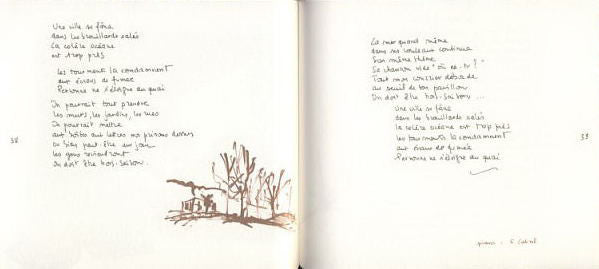 Une ville se fâne
dans les brouillards salés
La colère océane
est trop près
les tourments la condamnent
aux écrans de fumée
Personne ne s'éloigne du quai
On pourrait tout prendre
les murs, les jardins, les rues
On pourrait mettre
aux boîtes aux lettres nos prénoms dessus
Ou bien peut-être un jour
les gens reviendront
On doit être hors-saison.
38
La mer quand même
dans ses rouleaux continue
Son même thème
Sa chanson vide "où es-tu ?"
Tout mon courrier déborde
au seuil de ton pavillon
On doit être hors-saison ...
Une ville se fâne
dans les brouillards salés
la colère océane est trop près
les tourments la condamnent
aux écrans de fumée
Personne ne s'éloigne du quai
piano : F. Cabrel